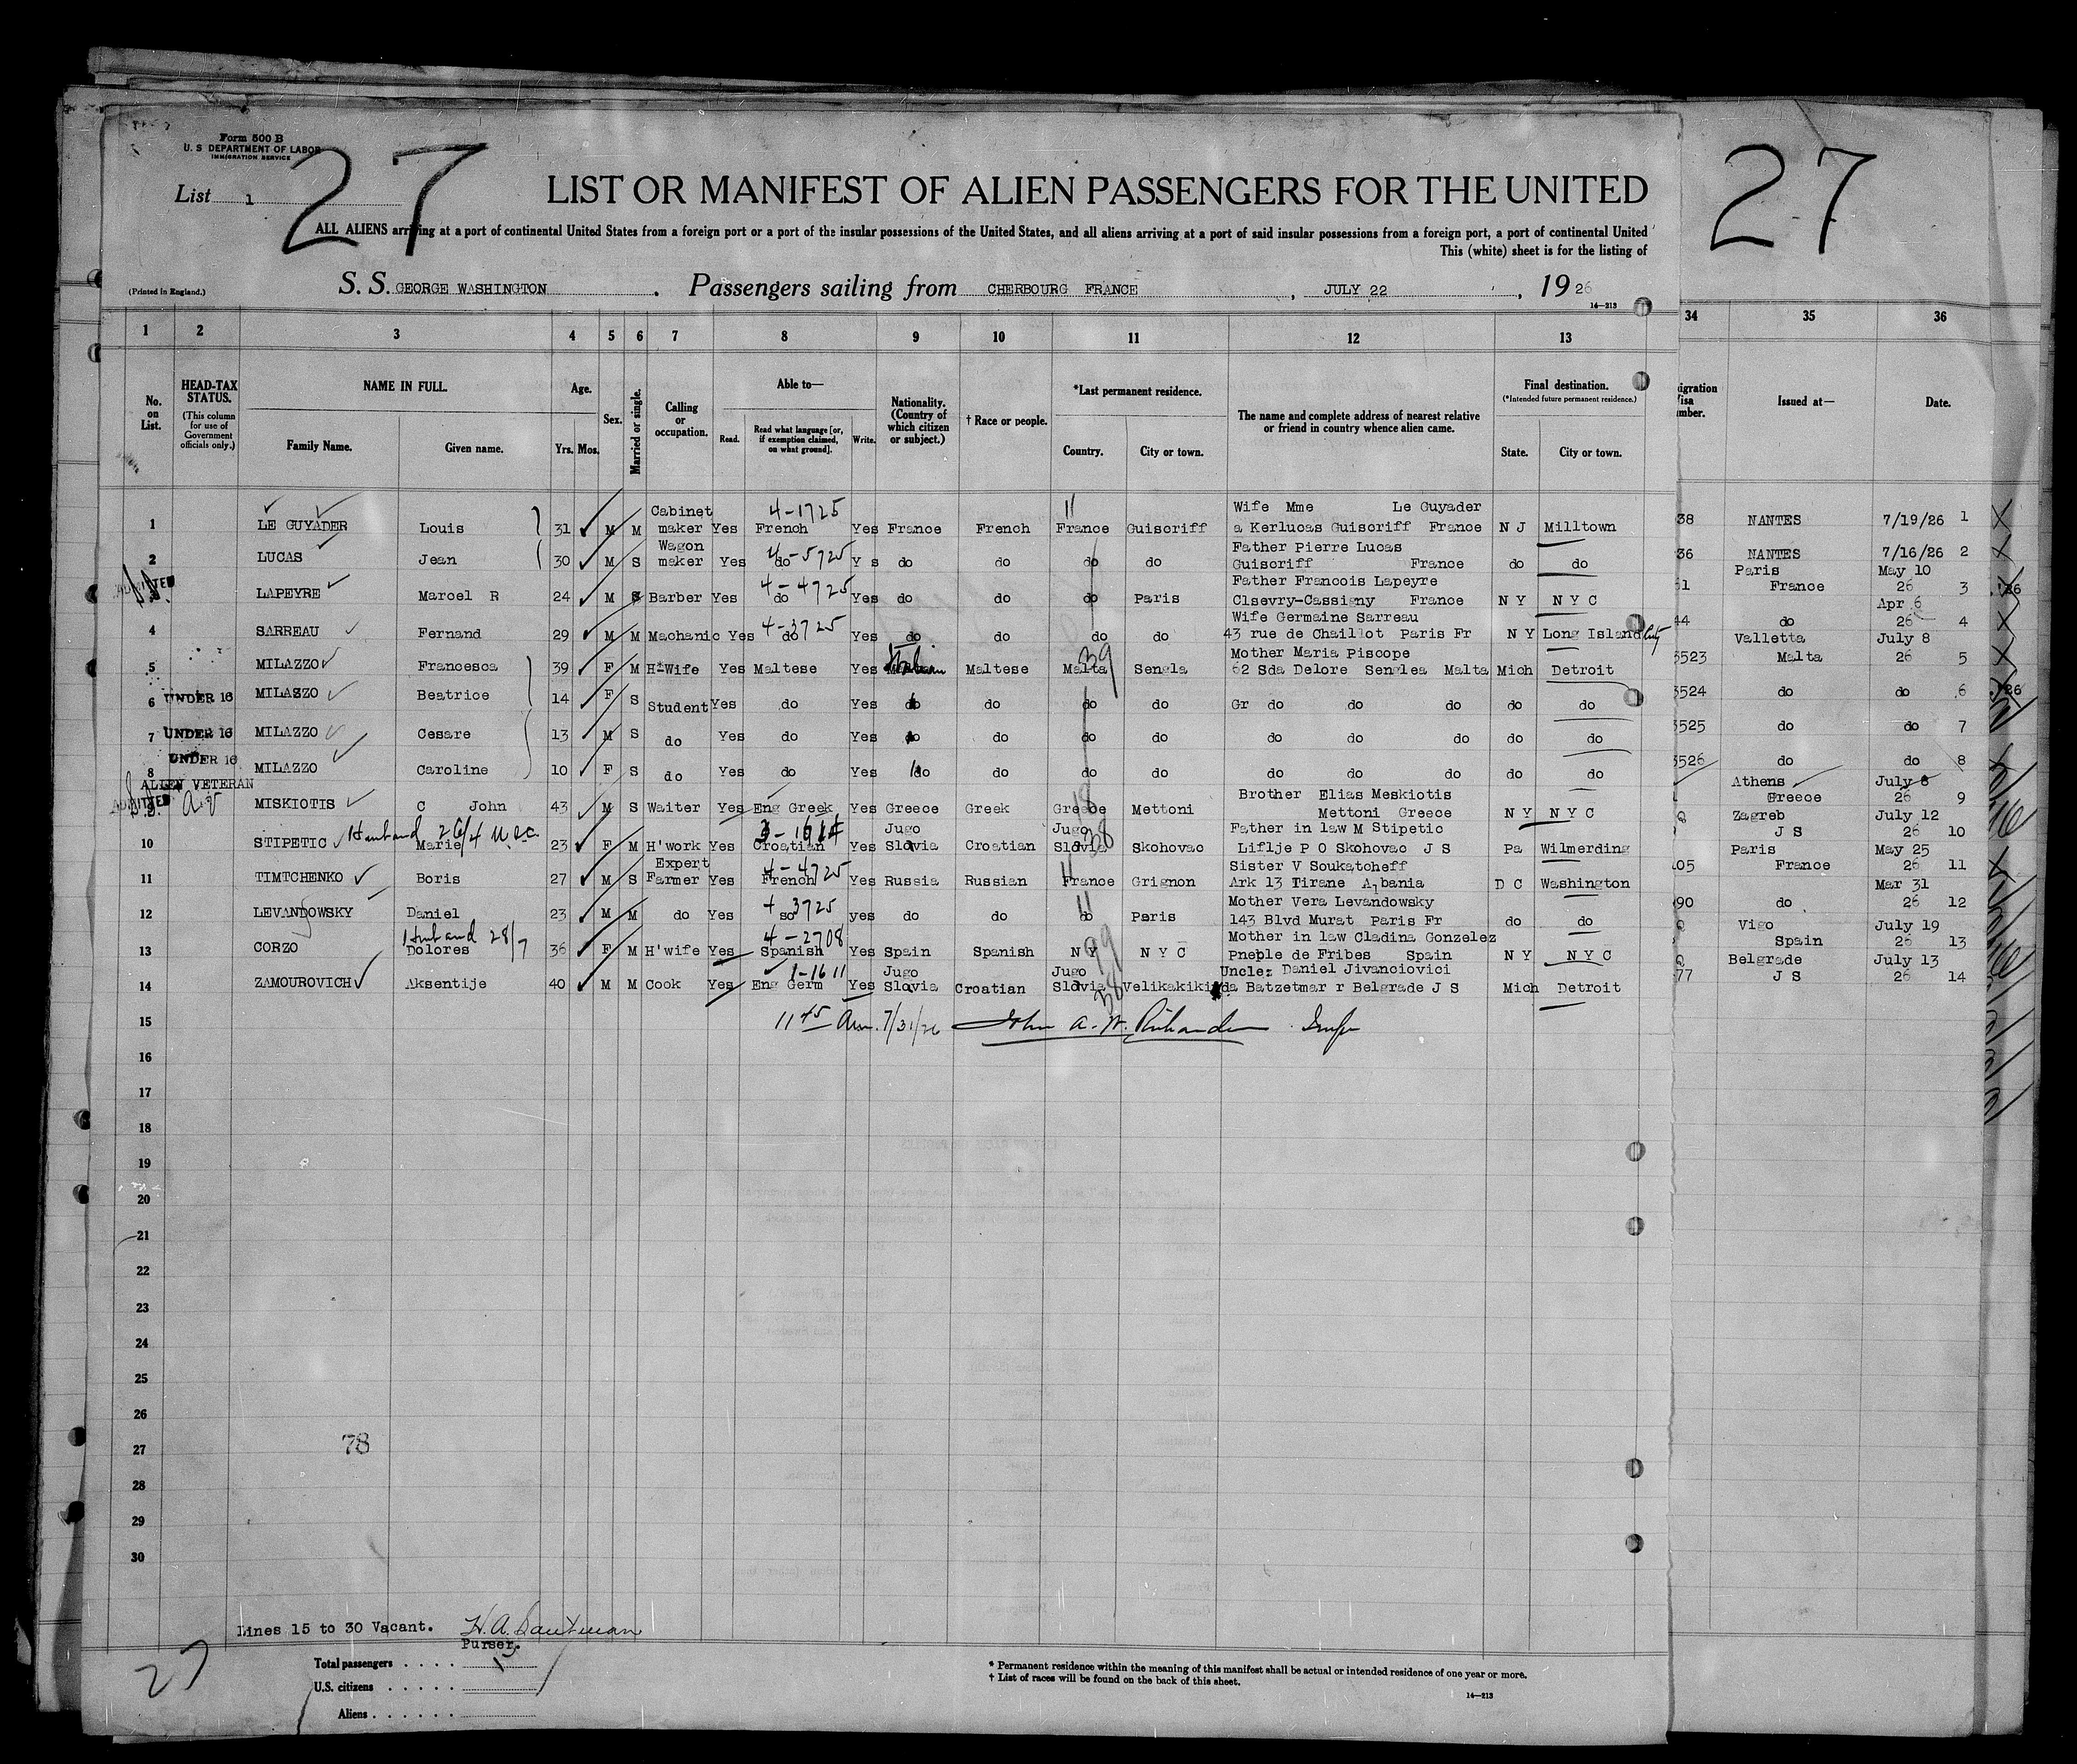 Form 500 B
U. S DEPARTMENT OF LABOR
IMMIGRATION SERVICE
27
27
List 1
LIST OR MANIFEST OF ALIEN PASSENGERS FOR THE UNITED
ALL ALIENS arriving at a port of continental United States from a foreign port or a port of the insular possessions of the United States, and all aliens arriving at a port of said insular possessions from a foreign port, a port of continental United
This (white) sheet is for the listing of
(Printed in England.)
S. S. GEORGE WASHINGTON . Passengers sailing from CHERBOURG FRANCE , JULY 22 , 19 26
14—213
1 2 3 4 5 6 7 8 9 10 11 12 13 34 35 36
No. on List.
HEAD-TAX STATUS.
(This column for use of Government officials only.)
NAME IN FULL.
Family Name. Given name.
Age.
Yrs. Mos.
Sex.
Married or single.
Calling or occupation.
Able to—
Read. Read what language [or, if exemption claimed, on what ground]. Write.
Nationality. (Country of which citizen or subject.)
† Race or people.
*Last permanent residence.
Country. City or town.
The name and complete address of nearest relative or friend in country whence alien came.
Final destination.
(*Intended future permanent residence.)
State. City or town.
Issued at—
Date.
Cabinet 4-1725 11 Wife Mme Le Guyader
1 LE GUYADER Louis 31 M M maker Yes French Yes France French France Guiscriff a Kerlucas Guiscriff France N J Milltown 38 NANTES 7/19/26 1
Wagon 4-5725 Father Pierre Lucas
2 LUCAS Jean 30 M S maker Yes do Y s do do do do Guiscriff France do do 36 NANTES 7/16/26 2
ADMITTED 4-4725 Father Francois Lapeyre Paris May 10
LAPEYRE Marcel R 24 M S Barber Yes do Yes do do do Paris Clsevry-Cassigny France N Y N Y C 61 France 26 3
4-3725 Wife Germaine Sarreau Apr 6
4 SARREAU Fernand 29 M M Machanic Yes do Yes do do do do 43 rue de Chaillot Paris Fr N Y Long Island City 44 do 26 4
Italian 39 Mother Maria Piscope Valletta July 8
5 MILAZZO Francesca 39 F M H-Wife Yes Maltese Yes Maltese Malta Sengla 62 Sda Delore Senglea Malta Mich Detroit 3523 Malta 26 5
6 UNDER 16 MILASZO Beatrice 14 F S Student Yes do Yes do do do do Gr do do do do do 3524 do do 6
7 UNDER 16 MILAZZO Cesare 13 M S do Yes do Yes do do do do do do do do do 3525 do do 7
UNDER 16
8 MILAZZO Caroline 10 F S do Yes do Yes do do do do do do do do do 3526 do do 8
ALIEN VETERAN 18 Brother Elias Meskiotis Athens July 8
ADMITTED av MISKIOTIS C John 43 M S Waiter Yes Eng Greek Yes Greece Greek Greece Mettoni Mettoni Greece N Y N Y C Greece 26 9
Husband 26/4 3-1614 Jugo Jugo 38 Father in law M Stipetic Zagreb July 12
10 STIPETIC Marie 23 F M H'work Yes Croatian Yes Slovia Croatian Slovia Skohovac Liflje P O Skohovac J S Pa Wilmerding J S 26 10
Expert 4-4725 11 Sister V Soukatcheff Paris May 25
11 TIMTCHENKO Boris 27 M S Farmer Yes French Yes Russia Russian France Grignon Ark 13 Tirane Albania D C Washington 105 France 26 11
3725 11 Mother Vera Levandowsky Mar 31
12 LEVANDOWSKY Daniel 23 M M do Yes so yes do do do Paris 143 Blvd Murat Paris Fr do do 090 do 26 12
Husband 28/7 4-2708 99 Mother in law Cladina Gonzelez Vigo July 19
13 CORZO Dolores 36 F M H'wife Yes Spanish Yes Spain Spanish N Y N Y C Pneble de Fribes Spain N Y N Y C Spain 26 13
1-1611 Jugo Jugo 38 Uncle: Daniel Jivanciovici Belgrade July 13
14 ZAMOUROVICH Aksentije 40 M M Cook Yes Eng Germ Yes Slovia Croatian Slovia Velikakikinda Batzetmar r Belgrade J S Mich Detroit 77 J S 26 14
15 11 45 Am. 7/31/26 John A. W.
16
17
18
19
20
21
22
23
24
25
26
27 78
28
29
30
Lines 15 to 30 Vacant.
Purser.
Total passengers
U.S. citizens
Aliens
27
* Permanent residence within the meaning of this manifest shall be actual or intended residence of one year or more.
† List of races will be found on the back of this sheet.
14—213